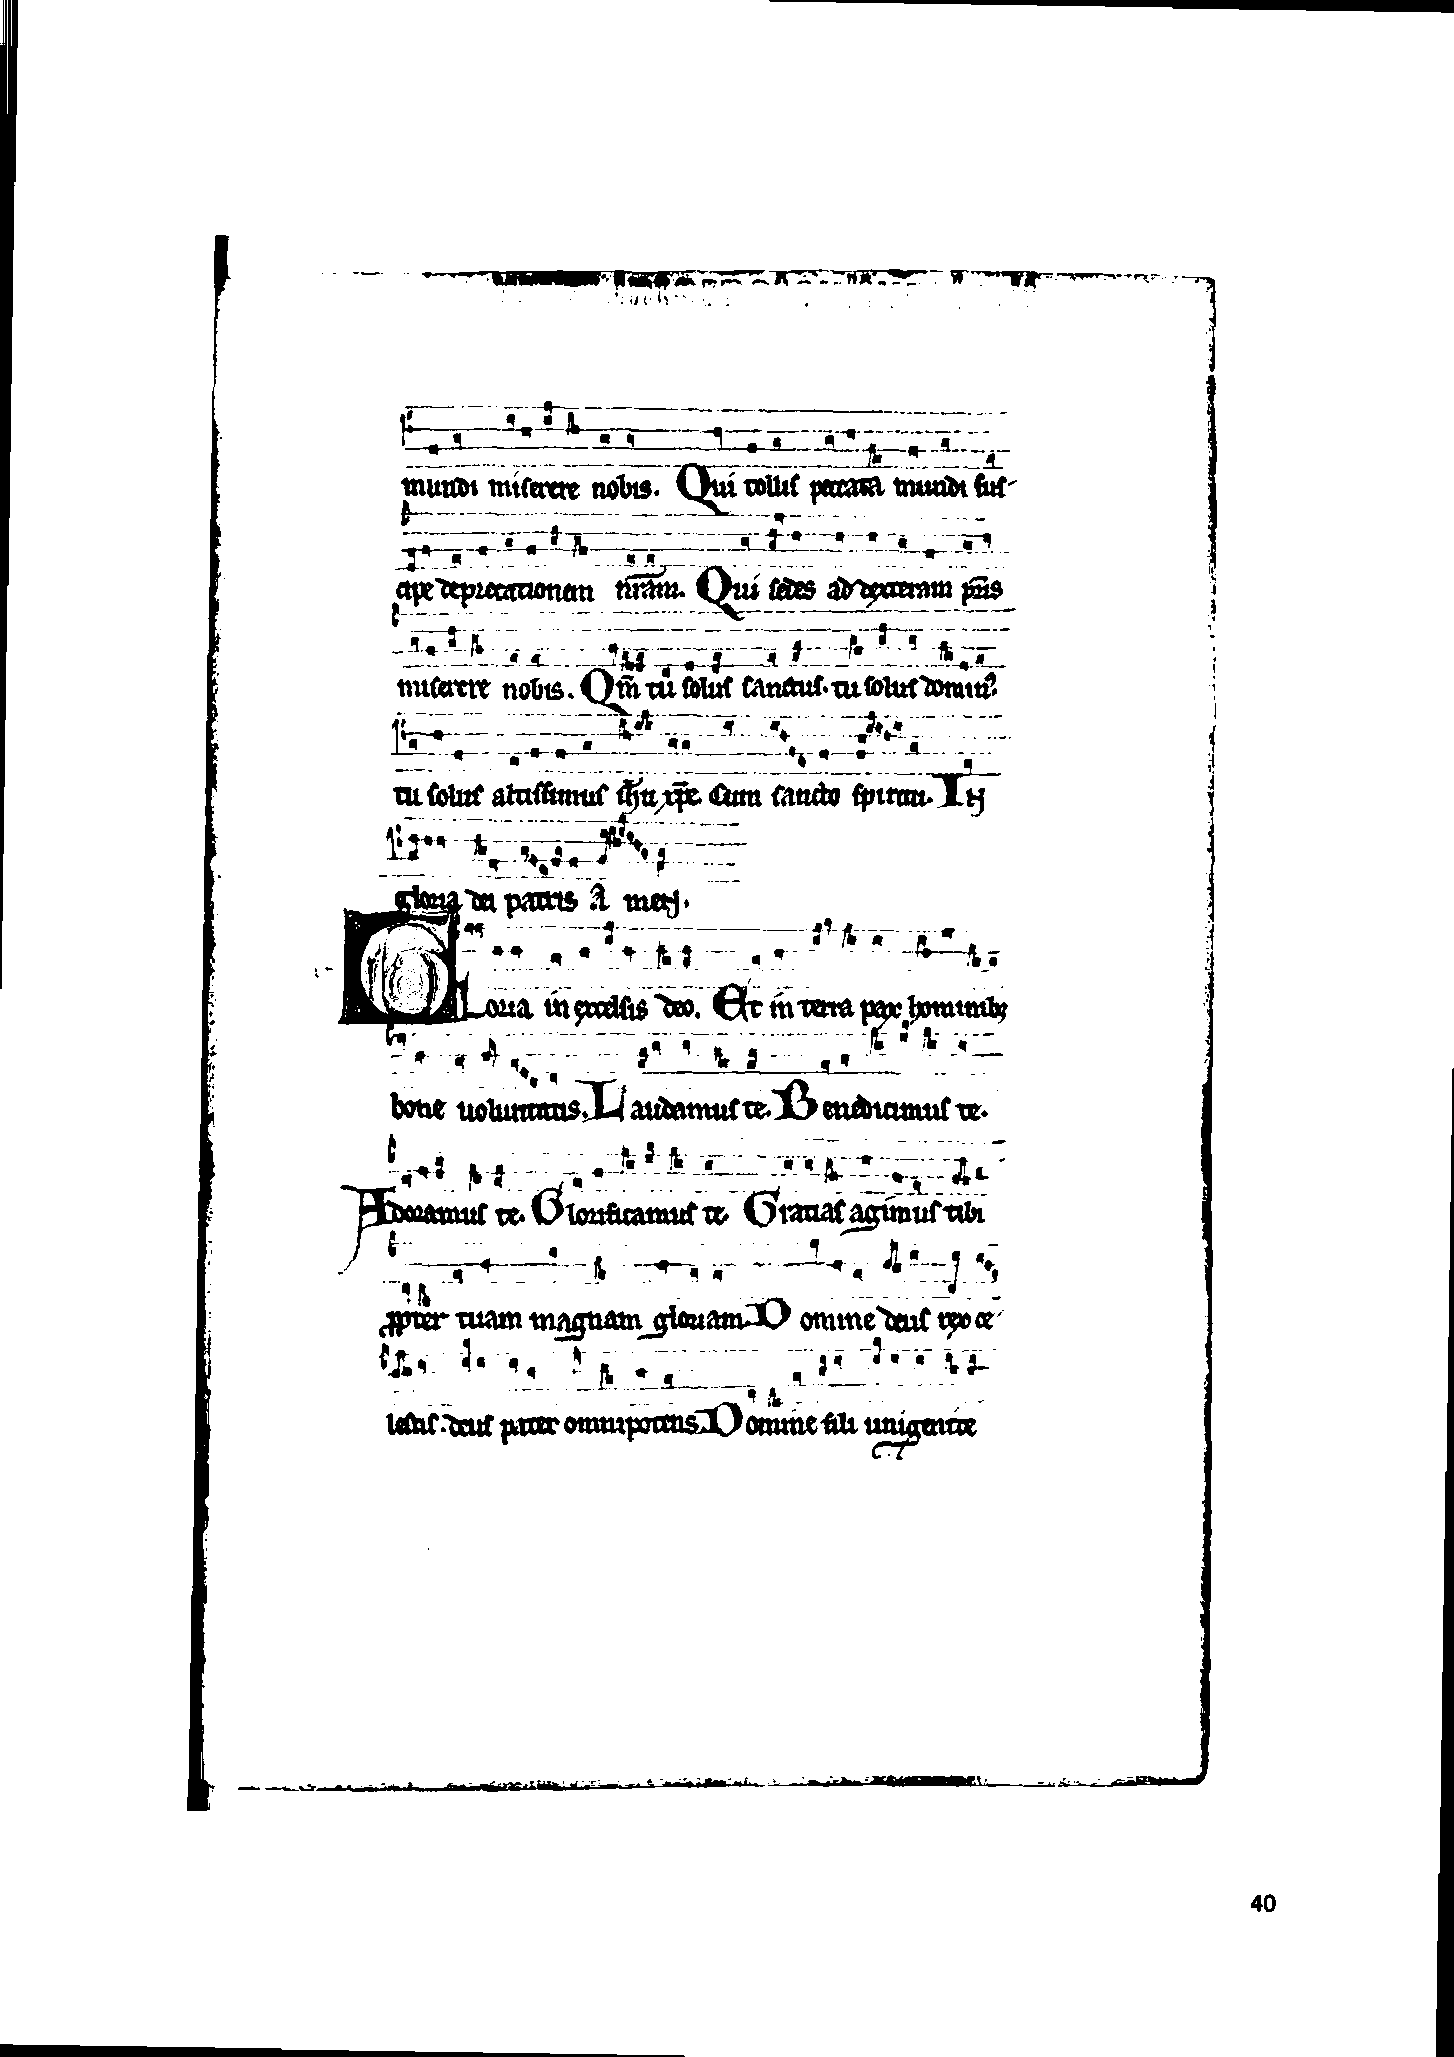 mundi miserere nobis. Qui tollis peccata mundi sus-
cipe deprecationem nr̄am. Qui sedes ad dexteram pr̄is
miserere nobis. Qm̄ tu solus sanctus. tu solus domin⁹
tu solus altissimus ih̄u xp̄e. Cum sancto spiritu. In
gloria dei patris a men.
Gloria in excelsis deo. Et in terra pax hominib⁊
bone uoluntatis. Laudamus te. Benedicimus te.
Adoramus te. Glorificamus te. Gratias agimus tibi
ꝓpter tuam magnam gloriam. Domine deus rex ce-
lestis. deus pater omnipotens. Domine fili unigenite
40